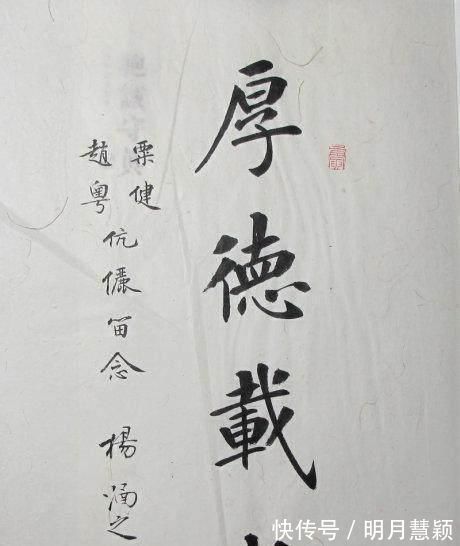 厚德載
栗健
趙粵 伉儷留念 楊涵之
快传号 / 明月慧颖